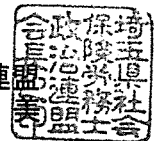 埼玉県社会
保険労務士
政治連盟
会長之印